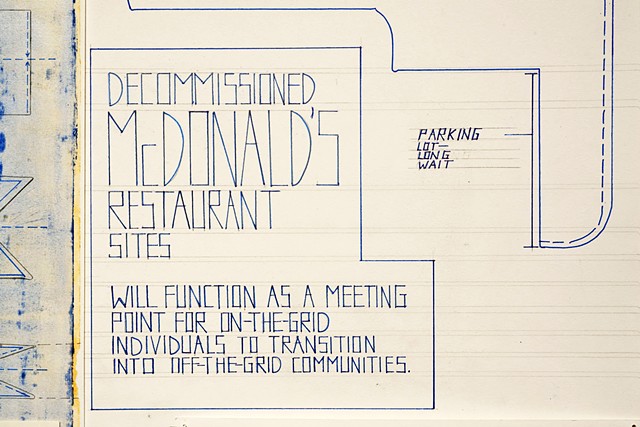 DECOMMISSIONED
McDONALD'S
RESTAURANT
SITES
WILL FUNCTION AS A MEETING
POINT FOR ON-THE-GRID
INDIVIDUALS TO TRANSITION
INTO OFF-THE-GRID COMMUNITIES.
PARKING
LOT—
LONG
WAIT